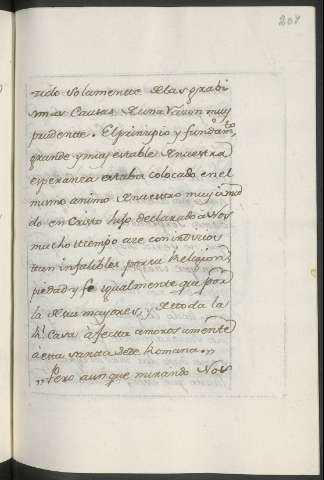 207
vido solamente de las grabi
simas Causas de una Varon muy
prudente. El principio y fundamto
grande y mas estable de nuestra
esperanza estaba colocado en el
mismo animo de nuestro muy ama
do en Cristo hijo declarado a Nos
mucho tiempo ace con indicios
tan infalibles por su Religion,
piedad y fe igualmente que por
la de sus mayores, y de toda la
Rl. Casa afecta amorosamente
a esta santa Sede Romana.,,
,, Pero aunque mirando Nos